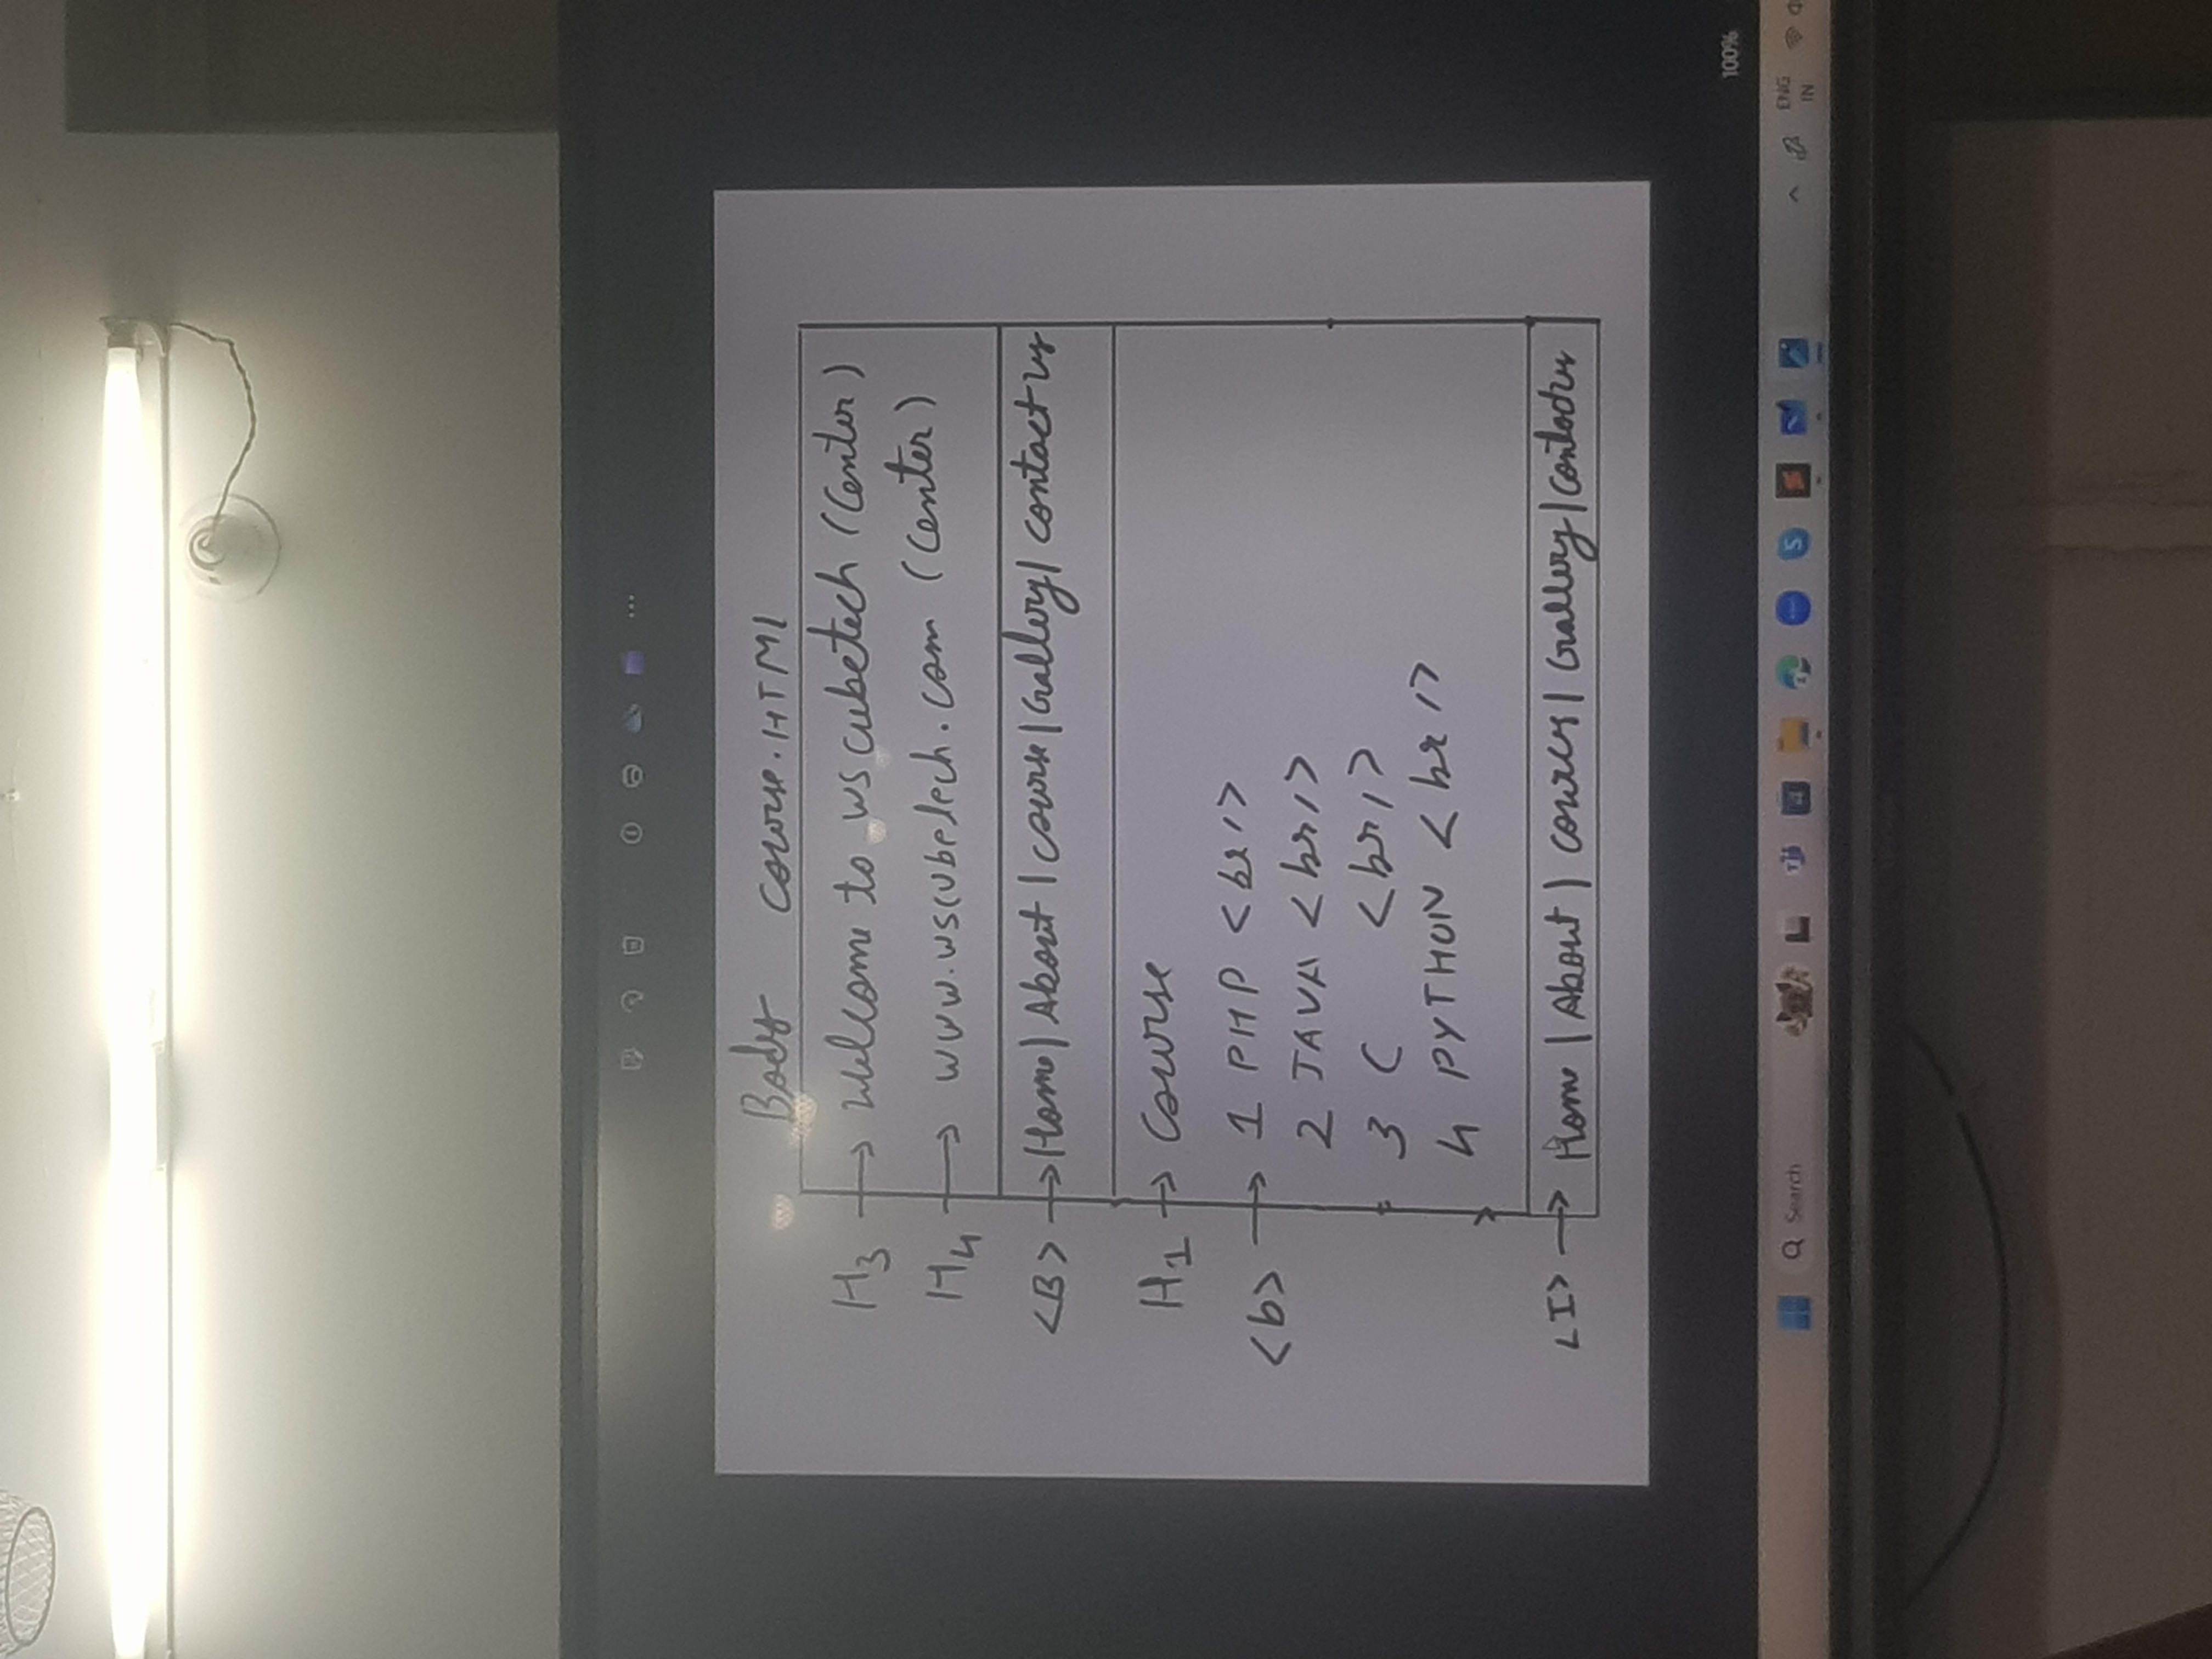 Body course.HTMl
H3 → Welcome to ws cubetech (Center)
H4 → www.wscubetech.com (Center)
<B> → Home | About | course | Gallery | contact us
H1 → Course
<b> → 1 PHP <br/>
2 JAVA <br/>
3 C <br/>
4 PYTHON <br/>
<I> → Home | About | courses | Gallery | Contact us
100%
Search
ENG
IN